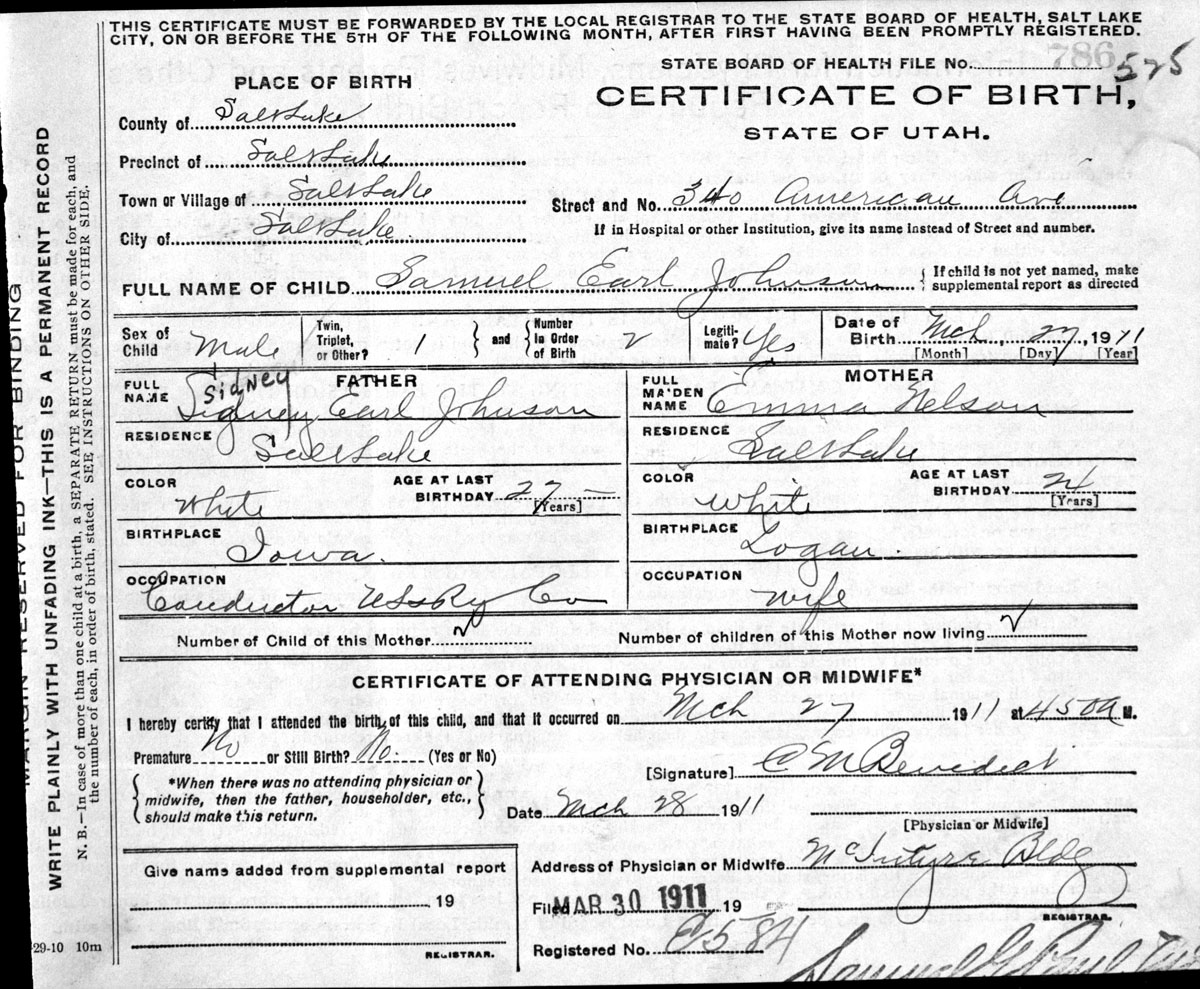 THIS CERTIFICATE MUST BE FORWARDED BY THE LOCAL REGISTRAR TO THE STATE BOARD OF HEALTH, SALT LAKE
CITY, ON OR BEFORE THE 5TH OF THE FOLLOWING MONTH, AFTER FIRST HAVING BEEN PROMPTLY REGISTERED.
STATE BOARD OF HEALTH FILE No. 786 525
PLACE OF BIRTH
CERTIFICATE OF BIRTH,
STATE OF UTAH.
County of Salt Lake
Precinct of Salt Lake
Town or Village of Salt Lake
Street and No. 340 American Ave
City of Salt Lake
If in Hospital or other Institution, give its name instead of Street and number.
FULL NAME OF CHILD Samuel Earl Johnson { If child is not yet named, make
supplemental report as directed
Sex of Child Male Twin, Triplet, or Other? 1 and Number In Order of Birth 2 Legiti-mate? Yes Date of Birth Mch 27, 1911
[Month] [Day] [Year]
FATHER
FULL NAME Sidney Sidney Earl Johnson
RESIDENCE Salt Lake
COLOR White AGE AT LAST BIRTHDAY 27 [Years]
BIRTHPLACE Iowa.
OCCUPATION Conductor, U L & Ry Co
MOTHER
FULL MAIDEN NAME Emma Nelson
RESIDENCE Salt Lake
COLOR White AGE AT LAST BIRTHDAY 24 [Years]
BIRTHPLACE Logan.
OCCUPATION Wife
Number of Child of this Mother 2 Number of children of this Mother now living 2
CERTIFICATE OF ATTENDING PHYSICIAN OR MIDWIFE*
I hereby certify that I attended the birth of this child, and that it occurred on Mch 27 1911 at 450 A M.
Premature No or Still Birth? No. (Yes or No)
[Signature] C M Benedict
{ *When there was no attending physician or
midwife, then the father, householder, etc.,
should make this return. }
Date Mch 28 1911
[Physician or Midwife]
Give name added from supplemental report
19
REGISTRAR.
Address of Physician or Midwife McIntyre Bldg
Filed MAR 30 1911 19
REGISTRAR.
Registered No. E584
29-10 10m
MARGIN RESERVED FOR BINDING
WRITE PLAINLY WITH UNFADING INK—THIS IS A PERMANENT RECORD
N. B.—In case of more than one child at a birth, a SEPARATE RETURN must be made for each, and
the number of each, in order of birth, stated. SEE INSTRUCTIONS ON OTHER SIDE.